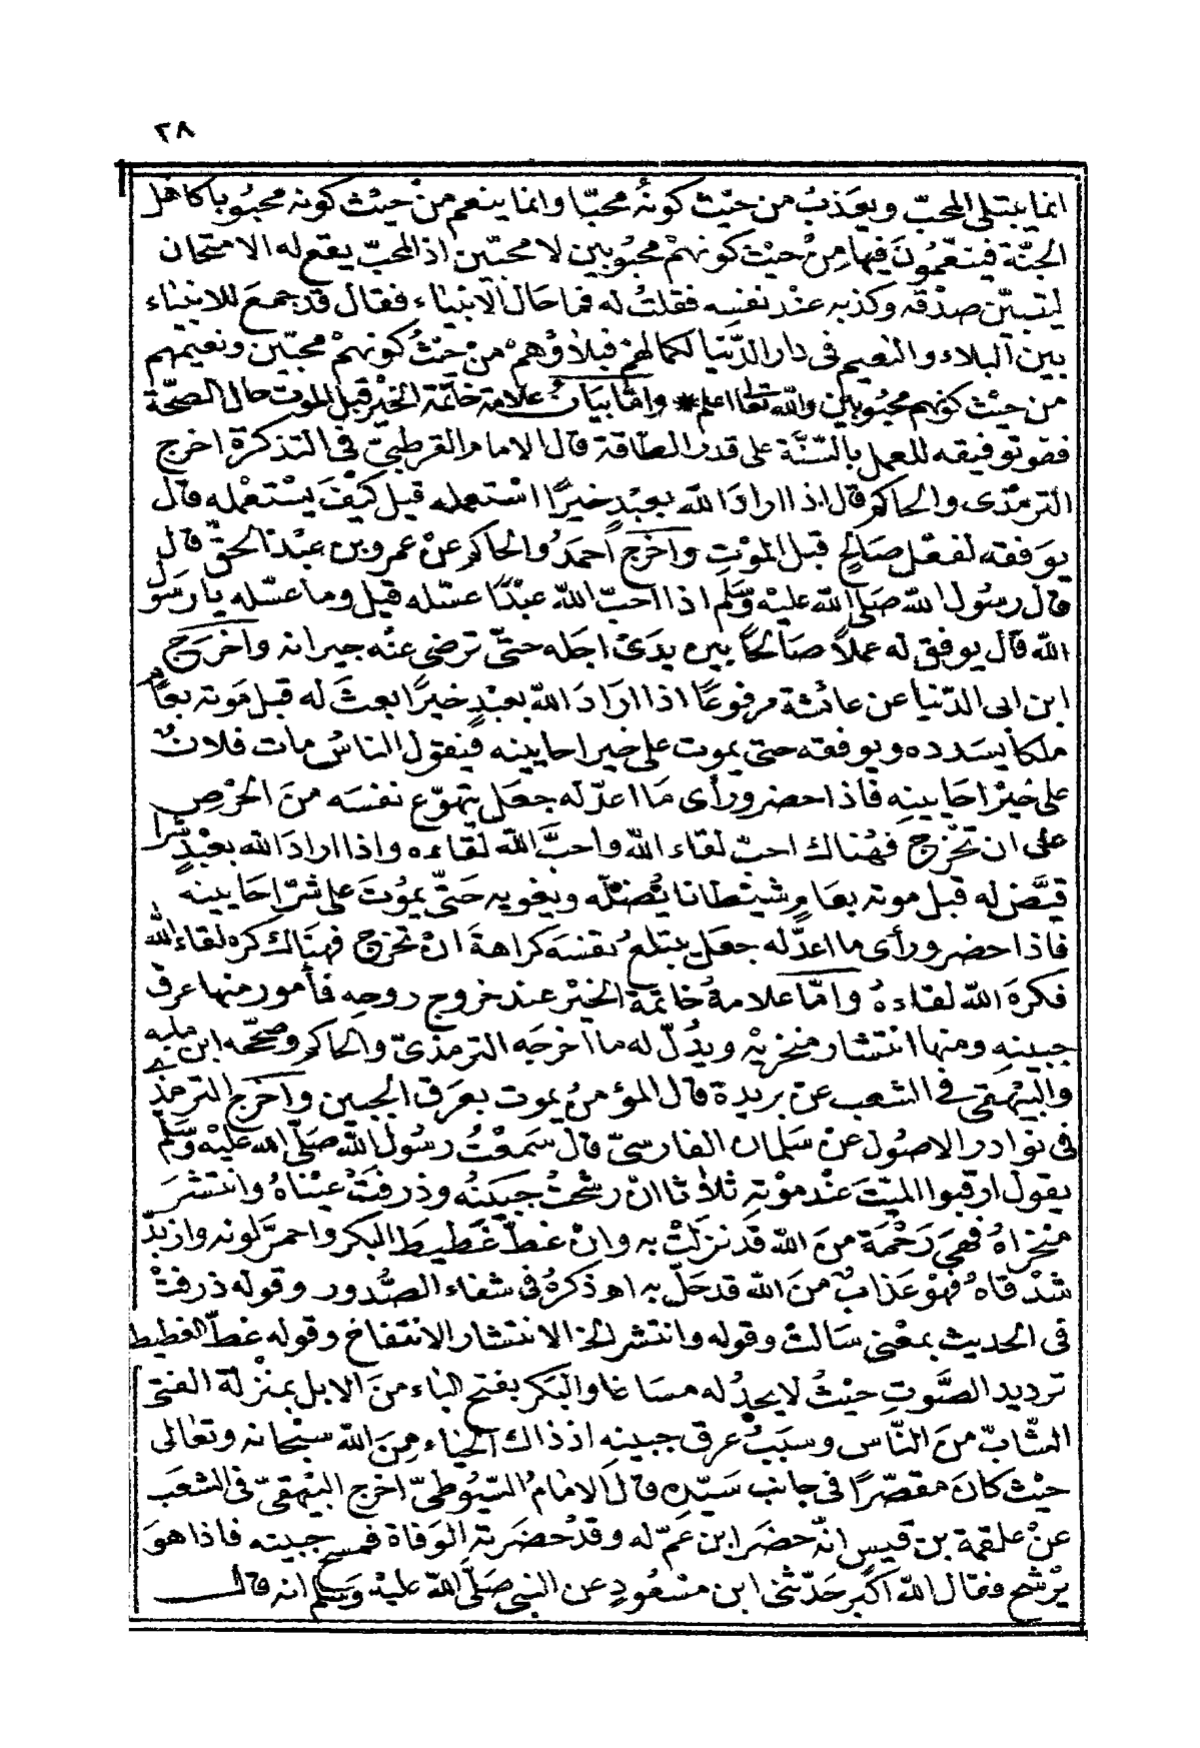 ٢٨
انما يبتلى المحبّ ويعذب من حيث كونه محبّا وانما ينعم من حيث كونه محبوبا كاهل
الجنّة فينعّمون فيها من حيث كونهم محبوبين لا محبّين اذ المحبّ يقع له الامتحان
ليتبيّن صدقه وكذبه عند نفسه فقلت له فما حال الانبياء فقال قد جمع للانبياء
بين البلاء والنعيم فى دار الدّنيا لكمالهم فبلاؤهم من حيث كونهم محبّين ونعيمهم
من حيث كونهم محبوبين والله تعالى اعلم * وامّا بيان علامة خاتمة الخير قبل الموت حال الصحّة
فهو توفيقه للعمل بالسّنّة على قدر الطاقة قال الامام القرطبىّ فى التذكرة اخرج
الترمذى والحاكم قال اذا اراد الله بعبد خيرًا استعمله قيل كيف يستعمله قال
يوفقه لفعل صالح قبل الموت واخرج احمد والحاكم عن عمرو بن عبد الحق قال
قال رسول الله صلى الله عليه وسلم اذا احبّ الله عبدًا عسّله قيل وما عسّله يا رسول
الله قال يوفق له عملاً صالحًا بين يدى اجله حتّى ترضى عنه جيرانه واخرج
ابن ابى الدّنيا عن عائشة مرفوعًا اذا اراد الله بعبد خيرًا بعث له قبل موته بعام
ملكا يسدده ويوفقه حتى يموت على خير احايينه فيقول الناس مات فلان
على خير احايينه فاذا حضر ورأى ما اعدّ له جعل يتهوّع نفسه من الحرص
على ان تخرج فهناك احبّ لقاء الله واحبّ الله لقاءه واذا اراد الله بعبد شرا
قيّض له قبل موته بعام شيطانا يُضلّه ويغويه حتّى يموت على شرّ احايينه
فاذا حضر ورأى ما اعدّ له جعل يبتلع نفسه كراهة ان تخرج فهناك كره لقاء الله
فكره الله لقاءه وامّا علامة خاتمة الخير عند خروج روحه فأمور منها عرق
جبينه ومنها انتشار منخريه ويدلّ له ما اخرجه الترمذىّ والحاكم وصحّحه ابن ماجه
والبيهقى فى الشعب عن بريدة قال المؤمن يموت بعرق الجبين واخرج الترمذى
فى نوادر الاصول عن سلمان الفارسىّ قال سمعت رسول الله صلّى الله عليه وسلّم
يقول ارقبوا الميّت عند موته ثلاثا ان رشحت جبينه وذرفت عيناه وانتشر
منخراه فهى رحمة من الله قد نزلت به وان غطّ غطيط البكر واحمرّ لونه وازبدّ
شدقاه فهو عذاب من الله قد حلّ به اهـ ذكره فى شفاء الصّدور وقوله ذرفت
فى الحديث بمعنى سالت وقوله وانتشر الخ الانتشار الانتفاخ وقوله غطّ الغطيط
ترديد الصّوت حيث لا يجد له مساغا والبكر بفتح الباء من الابل بمنزلة الفتى
الشابّ من النّاس وسبب عرق جبينه اذ ذاك الحياء من الله سبحانه وتعالى
حيث كان مقصّرًا فى جانب سيّده قال الامام السّيوطىّ اخرج البيهقىّ فى الشعب
عن علقمة بن قيس انّه حضر ابن عمّ له وقد حضرته الوفاة فمسح جبينه فاذا هو
يرشح فقال الله اكبر حدّثنى ابن مسعود عن النبى صلّى الله عليه وسلم انه قال